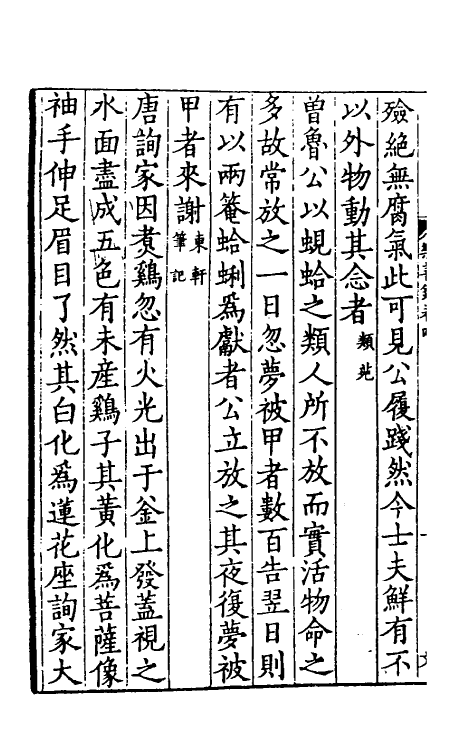 殮絕無腐氣此可見公履踐然今士夫鮮有不
以外物動其念者類苑
曽魯公以蜆蛤之類人所不放而實活物命之
多故常放之一日忽夢被甲者數百告翌日則
有以兩菴蛤蜊爲獻者公立放之其夜復夢被
甲者來謝東軒筆記
唐詢家因煑鷄忽有火光出于釜上發蓋視之
水面盡成五色有未産鷄子其黃化爲菩薩像
袖手伸足眉目了然其白化爲蓮花座詢家大